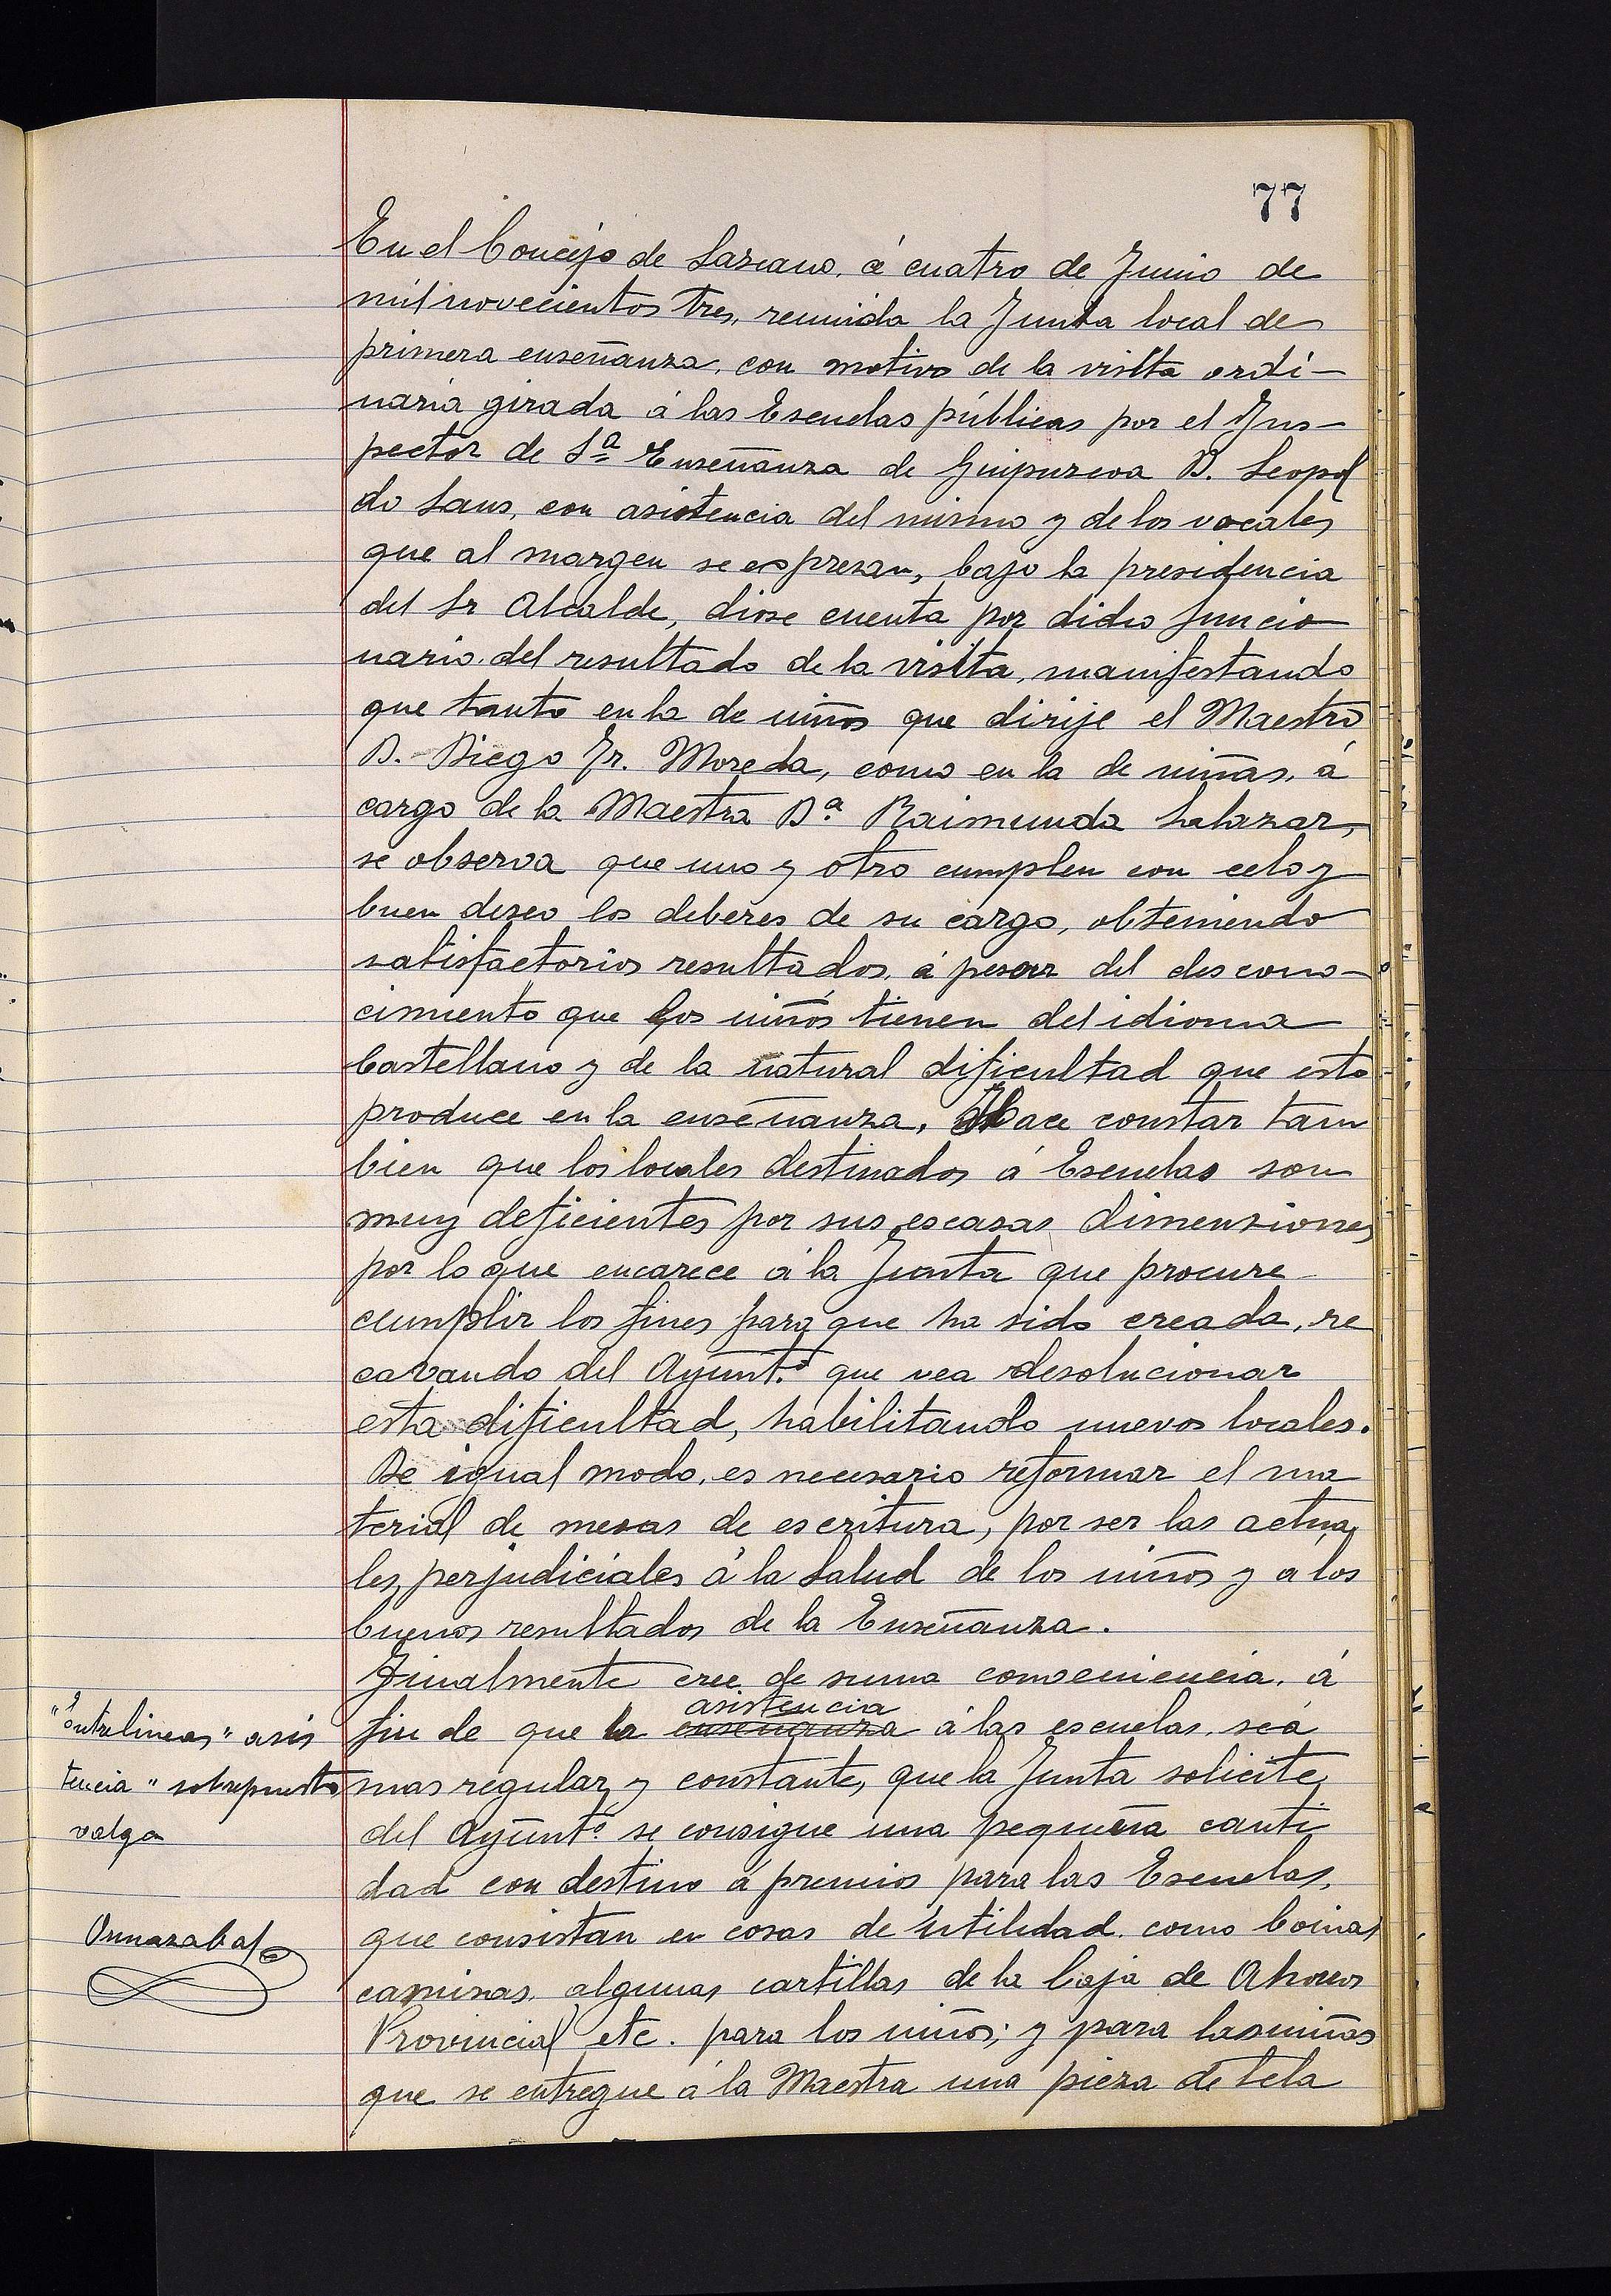 77
En el Concejo de Lazcano, á cuatro de Junio de
mil novecientos tres, reunida la Junta local de
primera enseñanza, con motivo de la visita ordi-
naria girada á las Escuelas públicas por el Yns-
pector de 1ª Enseñanza de Guipuzcoa D. Leopol
do Sanz, con asistencia del mismo y de los vocales
que al margen se expresan, bajo la presidencia
del Sr Alcalde, diose cuenta por dicho funcio
nario del resultado de la visita, manifestando
que tanto en la de niños que dirije el Maestro
D. Diego Fr. Moreda, como en la de niñas, á
cargo de la Maestra Dª Raimunda Salazar,
se observa que uno y otro cumplen con celo y
buen deseo los deberes de su cargo, obteniendo
satisfactorios resultados, á pesar del descono-
cimiento que los niños tienen del idioma
Castellano y de la natural dificultad que esto
produce en la enseñanza. Hace constar tam
bien que los locales destinados á Escuelas son
muy deficientes por sus escasas dimensiones
por lo que encarece á la Junta que procure
cumplir los fines para que ha sido creada, re
cavando del Ayuntº que vea de solucionar
esta dificultad, habilitando nuevos locales.
De igual modo, es necesario reformar el ma
terial de mesas de escritura, por ser las actua
les, perjudiciales á la salud de los niños y a los
buenos resultados de la Enseñanza.
Finalmente cree de suma conveniencia, á
asistencia
fin de que la enseñanza á las escuelas, sea
mas regular y constante, que la Junta solicite
del Ayuntº se consigue una pequeña canti
dad con destino á premios para las Escuelas,
que consistan en cosas de utilidad como boinas,
camisas, algunas cartillas de la Caja de Ahorros
Provincial etc. para los niños; y para las niñas
que se entregue á la Maestra una pieza de tela
"Entrelineas" asis
tencia" sobrepuesto
valga
Ormazabal